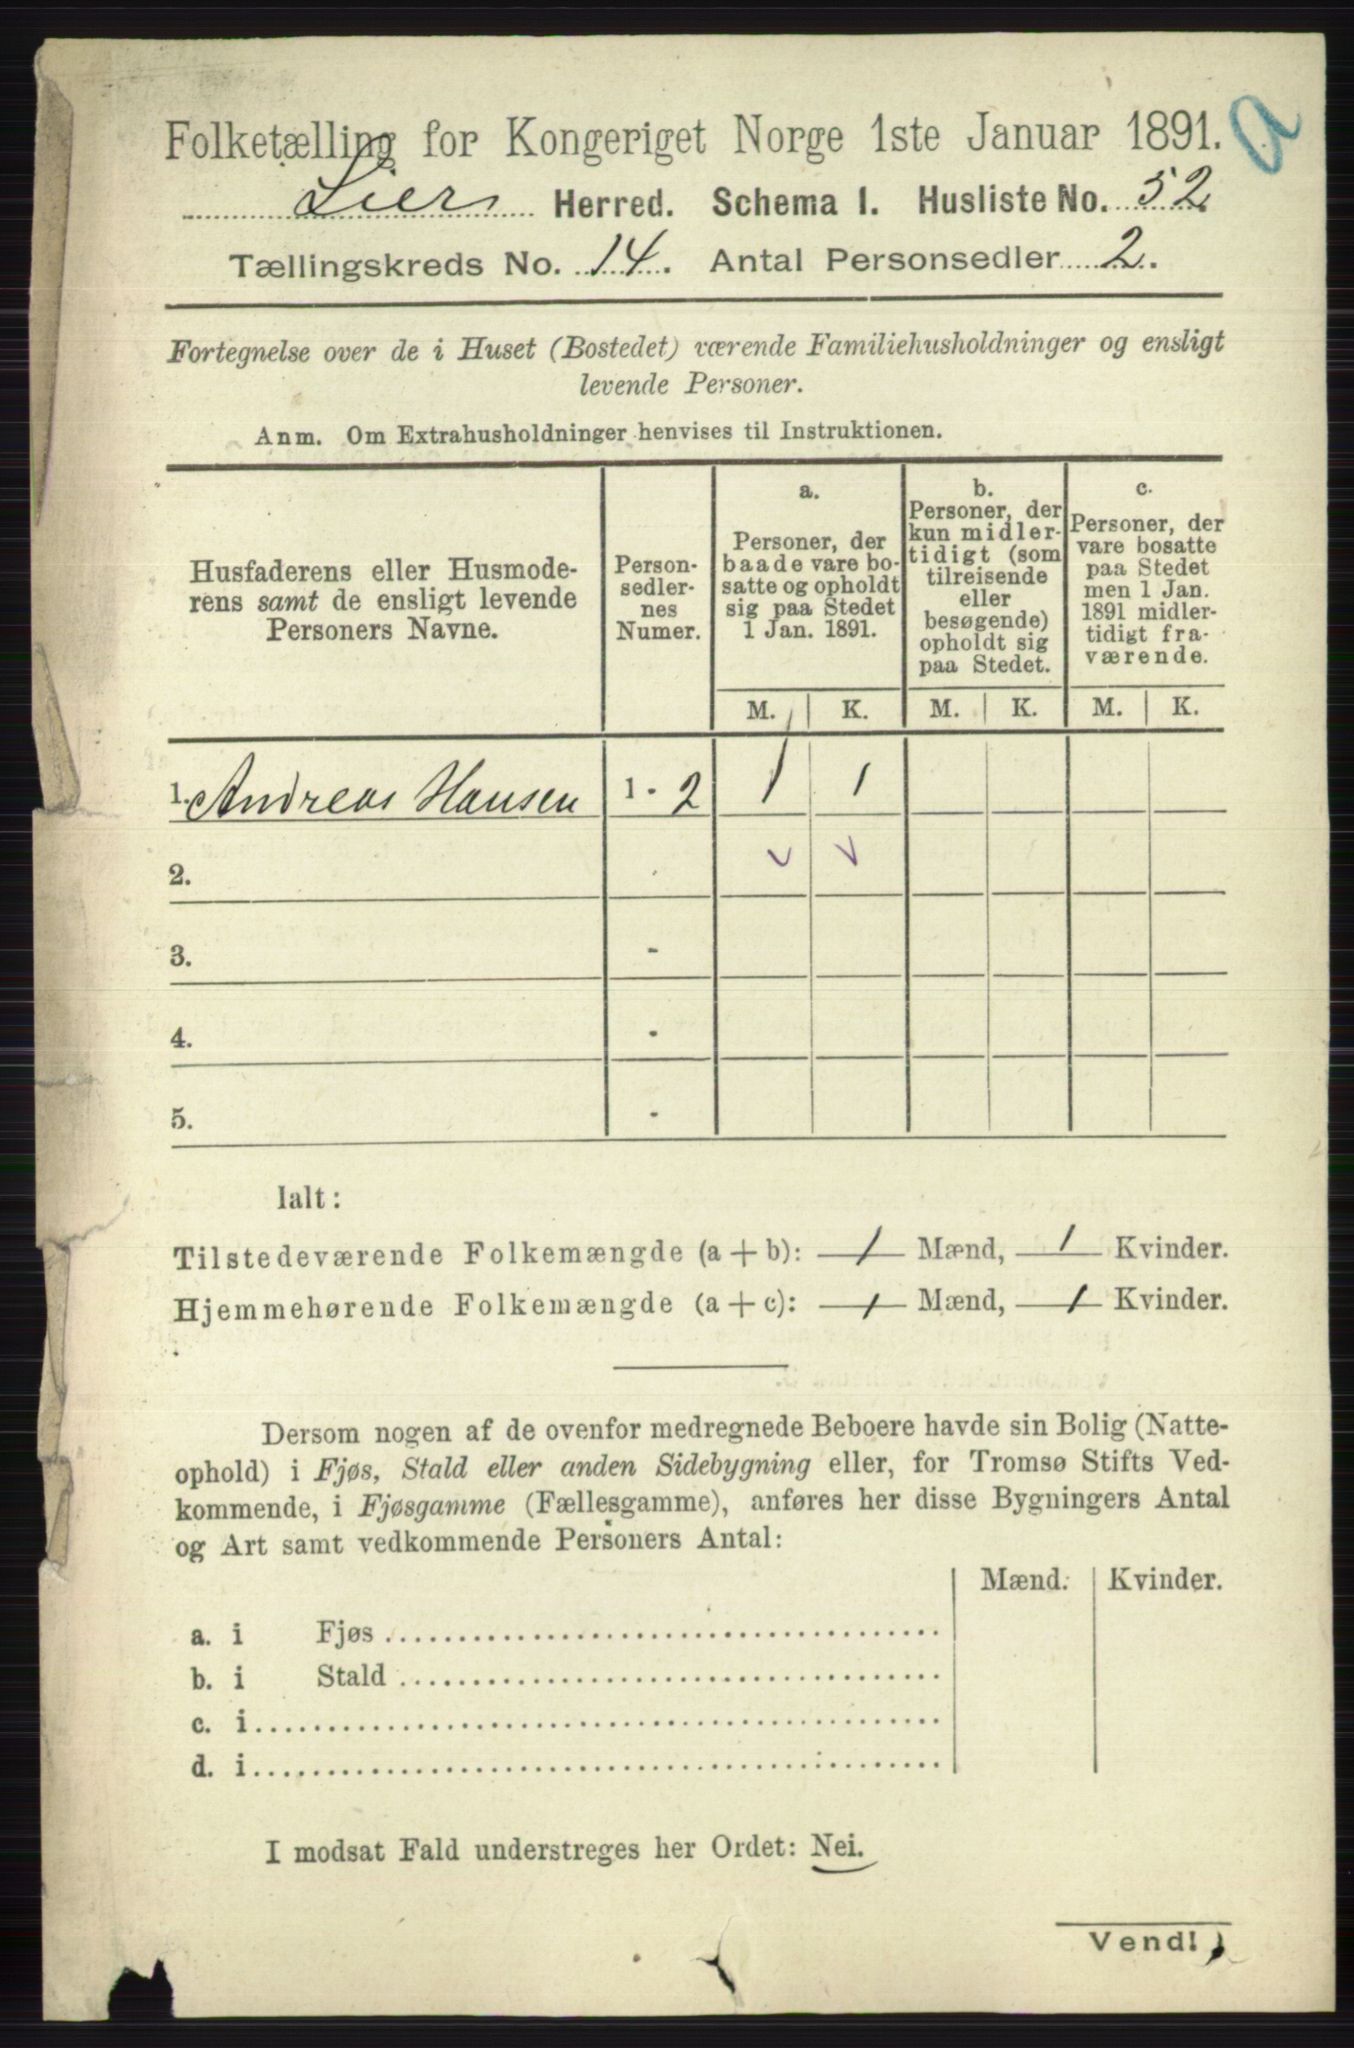 Folketælling for Kongeriget Norge 1ste Januar 1891.
a
Lier Herred. Schema I. Husliste No. 52
Tællingskreds No. 14. Antal Personsedler 2.
Fortegnelse over de i Huset (Bostedet) værende Familiehusholdninger og ensligt
levende Personer.
Anm. Om Extrahusholdninger henvises til Instruktionen.
Husfaderens eller Husmode-
rens samt de ensligt levende
Personers Navne.
Person-
sedler-
nes
Numer.
a.
Personer, der
baade vare bo-
satte og opholdt
sig paa Stedet
1 Jan. 1891.
b.
Personer, der
kun midler-
tidigt (som
tilreisende
eller
besøgende)
opholdt sig
paa Stedet.
c.
Personer, der
vare bosatte
paa Stedet
men 1 Jan.
1891 midler-
tidigt fra-
værende.
M. K. M. K. M. K.
1. Andreas Hansen 1 - 2 1 1
2.
3. -
4. -
5. -
Ialt:
Tilstedeværende Folkemængde (a + b): 1 Mænd, 1 Kvinder.
Hjemmehørende Folkemængde (a + c): 1 Mænd, 1 Kvinder.
Dersom nogen af de ovenfor medregnede Beboere havde sin Bolig (Natte-
ophold) i Fjøs, Stald eller anden Sidebygning eller, for Tromsø Stifts Ved-
kommende, i Fjøsgamme (Fællesgamme), anføres her disse Bygningers Antal
og Art samt vedkommende Personers Antal:
Mænd. Kvinder.
a. i Fjøs
b. i Stald
c. i
d. i
I modsat Fald understreges her Ordet: Nei.
Vend!